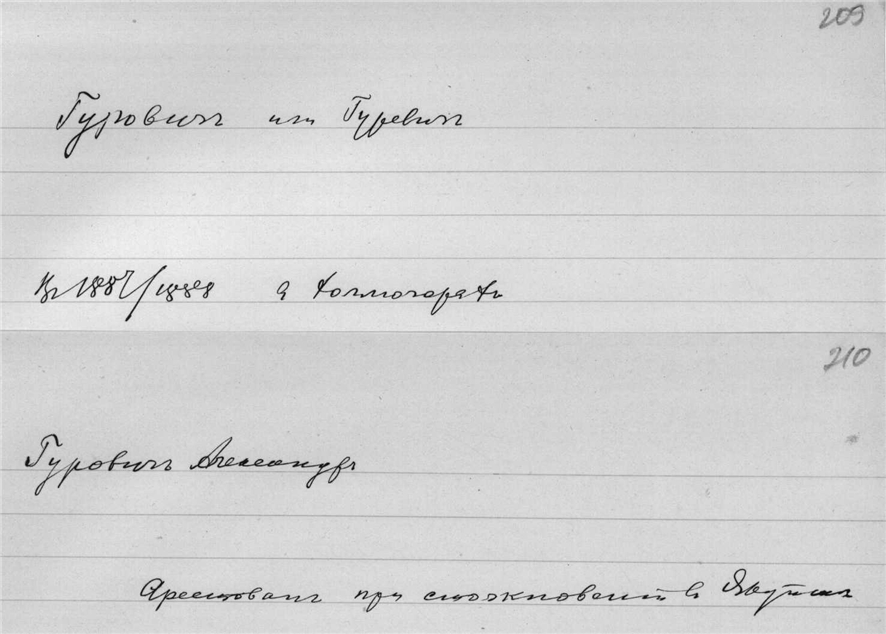 209
Гуровичъ или Гуревичъ
Въ 1887/1888 в Холмогорахъ
210
Гуровичъ Александръ
Арестованъ при столкновенiи въ